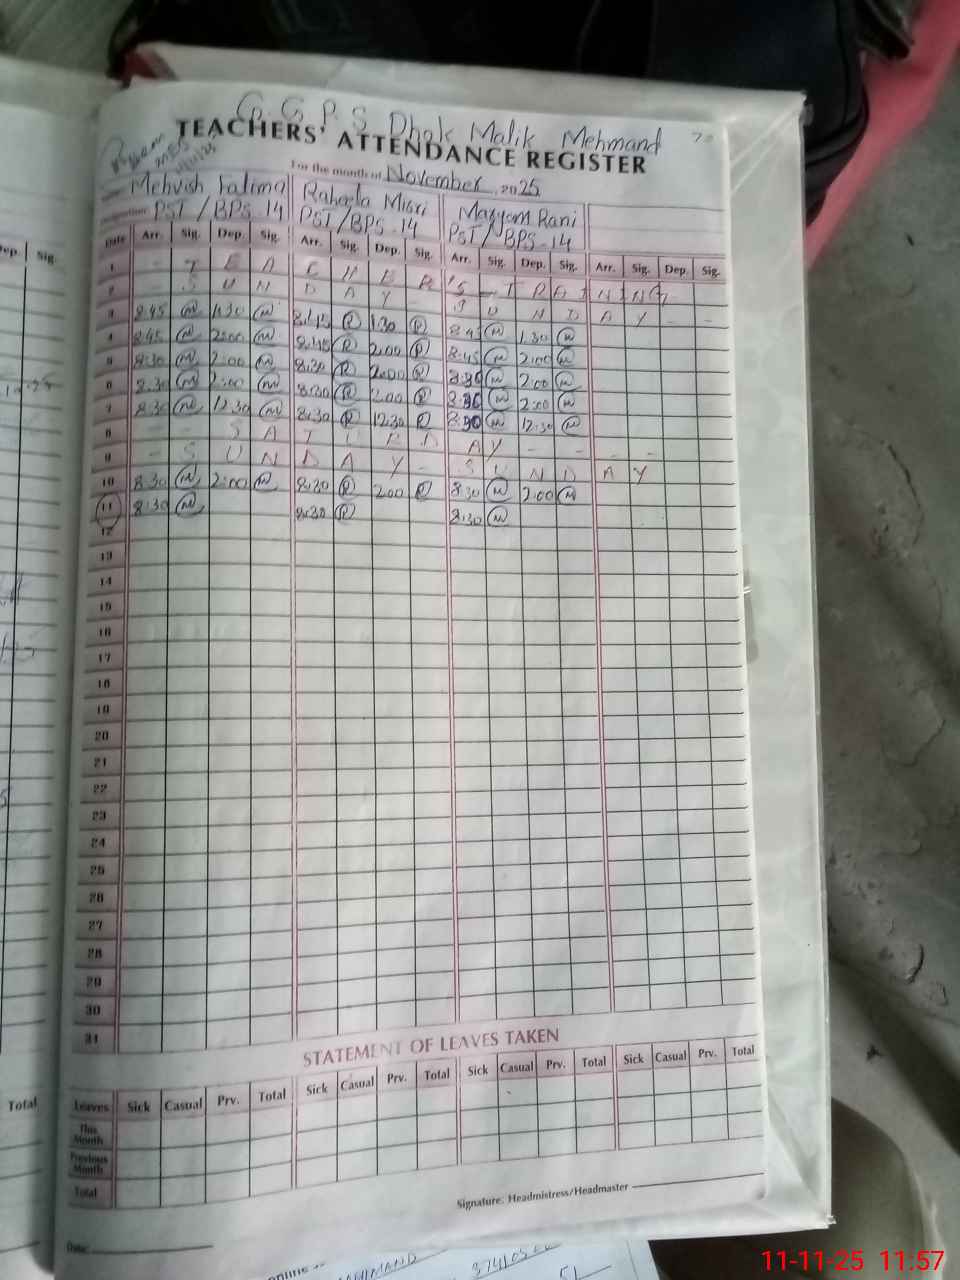 G. G. P. S Dhok Malik Mehmand
TEACHERS' ATTENDANCE REGISTER
For the month of November, 2025
Mehvish Fatima Raheela Misri Maryam Rani
Designation PST / BPS-14 PST / BPS-14 PST / BPS-14
Date Arr. Sig. Dep. Sig. Arr. Sig. Dep. Sig. Arr. Sig. Dep. Sig. Arr. Sig. Dep. Sig.
1 - T E A C H E R 'S - T R A I N I N G
2 - S U N D A Y - S U N D A Y - -
3 8.45 M 1.30 M 8.45 R 1.30 R 8.45 M 1.30 M
4 8.45 M 2:00 M 8.45 R 2.00 R 8.45 M 2:00 M
5 8:30 M 2:00 M 8.30 R 2.00 R 8.30 M 2.00 M
6 8.30 M 2:00 M 8.30 R 2.00 R 8.30 M 2:00 M
7 8:30 M 12:30 M 8.30 R 12.30 R 8.30 M 12:30 M
8 - - S A T U R D A Y - - - -
9 - S U N D A Y - S U N D A Y
10 8:30 M 2:00 M 8.30 R 2.00 R 8.30 M 2:00 M
11 8:30 M 8.30 R 8.30 M
12
13
14
15
16
17
18
19
20
21
22
23
24
25
26
27
28
29
30
31
STATEMENT OF LEAVES TAKEN
Leaves Sick Casual Prv. Total Sick Casual Prv. Total Sick Casual Prv. Total Sick Casual Prv. Total
This Month
Previous Month
Total
Signature: Headmistress/Headmaster
Date:
Dep. Sig.
Total
11-11-25 11:57